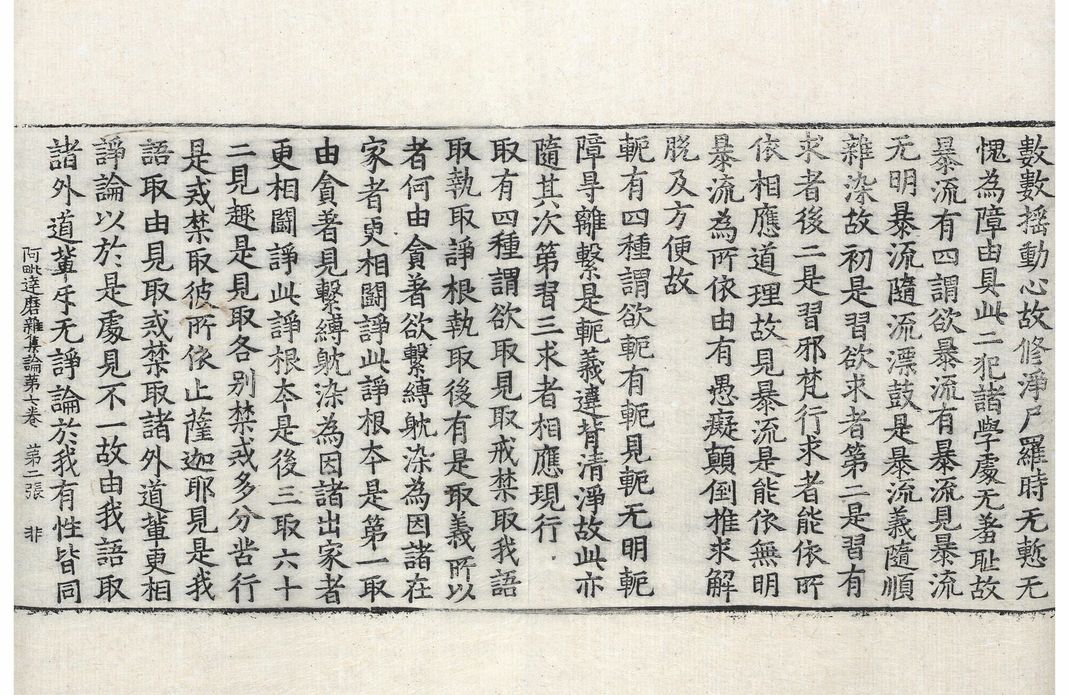 數數摇動心故修淨尸羅時无慙无
愧為障由具此二犯諸學處无羞耻故
暴流有四謂欲暴流有暴流見暴流
无明暴流隨流漂鼓是暴流義隨順
雜染故初是習欲求者第二是習有
求者後二是習邪梵行求者能依所
依相應道理故見暴流是能依無明
暴流為所依由有愚癡顛倒推求解
脱及方便故
軛有四種謂欲軛有軛見軛无明軛
障㝵離繫是軛義違背清淨故此亦
隨其次第習三求者相應現行
取有四種謂欲取見取戒禁取我語
取執取諍根執取後有是取義所以
者何由貪著欲繫縛躭染為因諸在
家者更相鬪諍此諍根夲是第一取
由貪著見繫縛躭染為因諸出家者
更相鬪諍此諍根夲是後三取六十
二見趣是見取各别禁戒多分苦行
是戒禁取彼所依止薩迦耶見是我
語取由見取戒禁取諸外道軰更相
諍論以於是處見不一故由我語取
諸外道軰㸦无諍論於我有性皆同
阿毗達磨雜集論苐七卷 苐二張 非